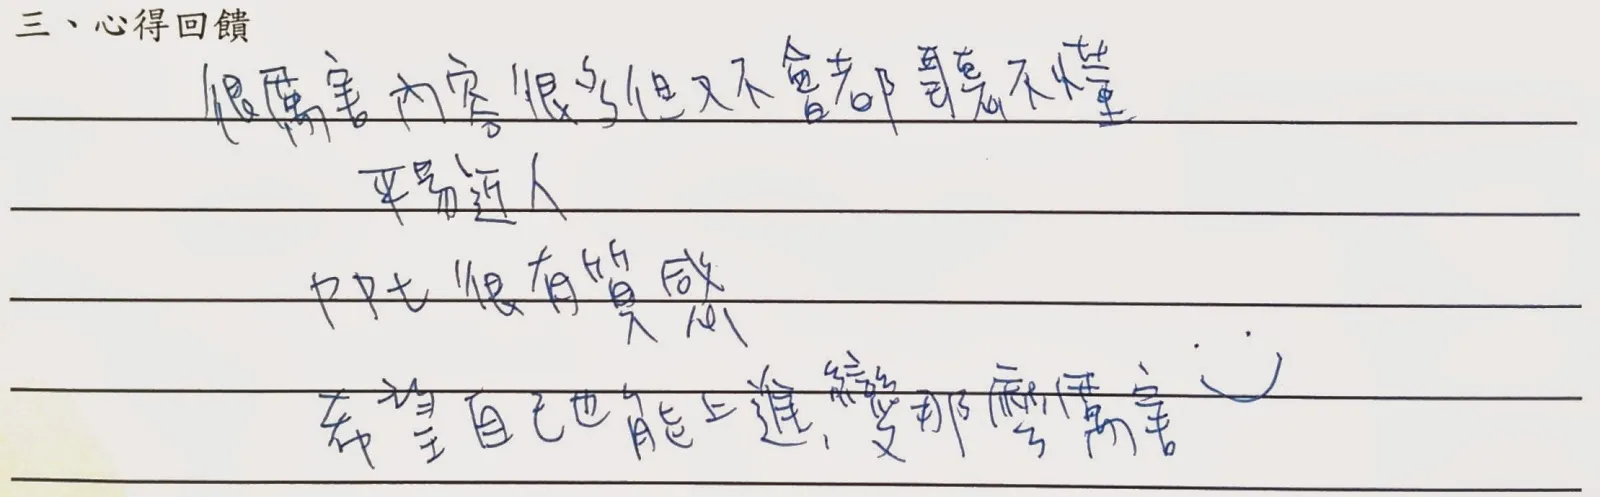 三、心得回饋
很厲害內容很多但又不會都聽不懂
平易近人
PPt很有質感
希望自己也能上進,變那麼厲害